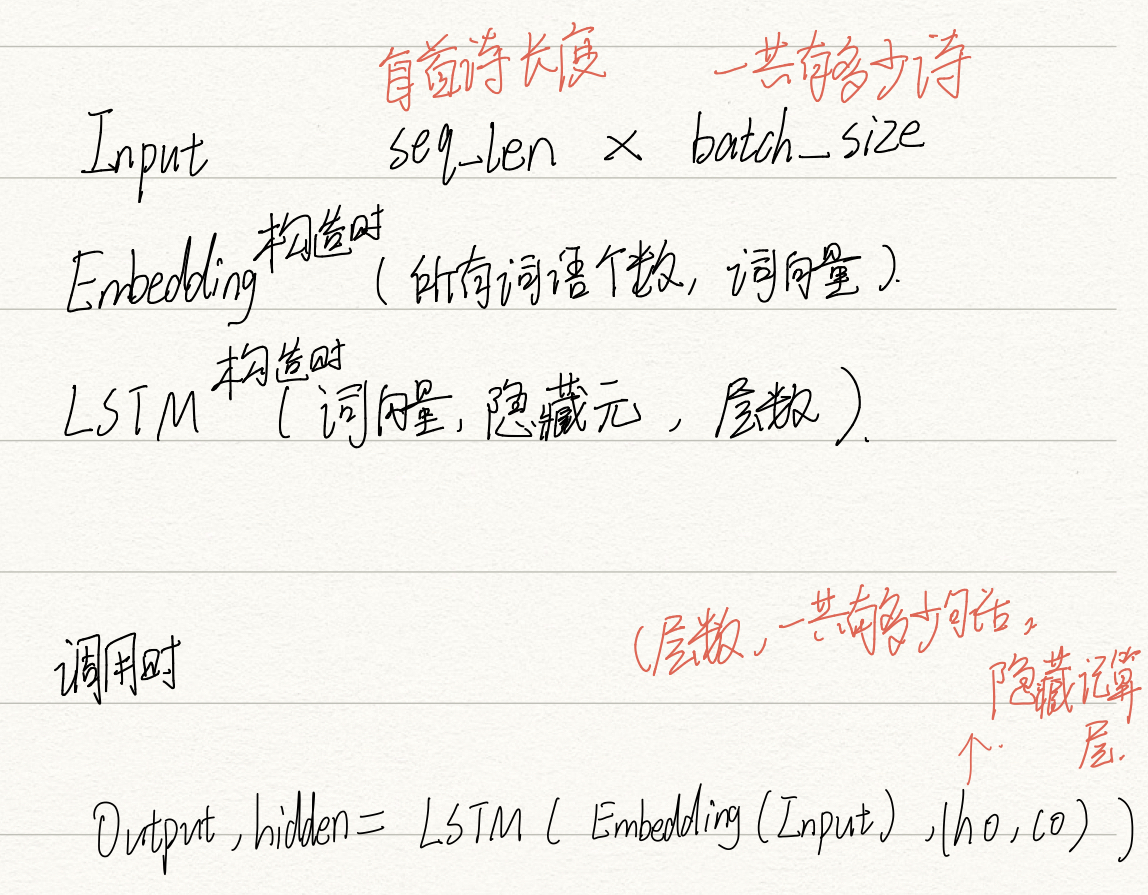 每首诗长度 一共有多少诗
Input seq_len × batch_size
Embedding 构造时 (所有词语个数, 词向量).
LSTM 构造时 (词向量, 隐藏元, 层数).
(层数, 一共有多少句话,
调用时
隐藏记算
层.
↑
Output, hidden = LSTM ( Embedding (Input), (h0, c0) )